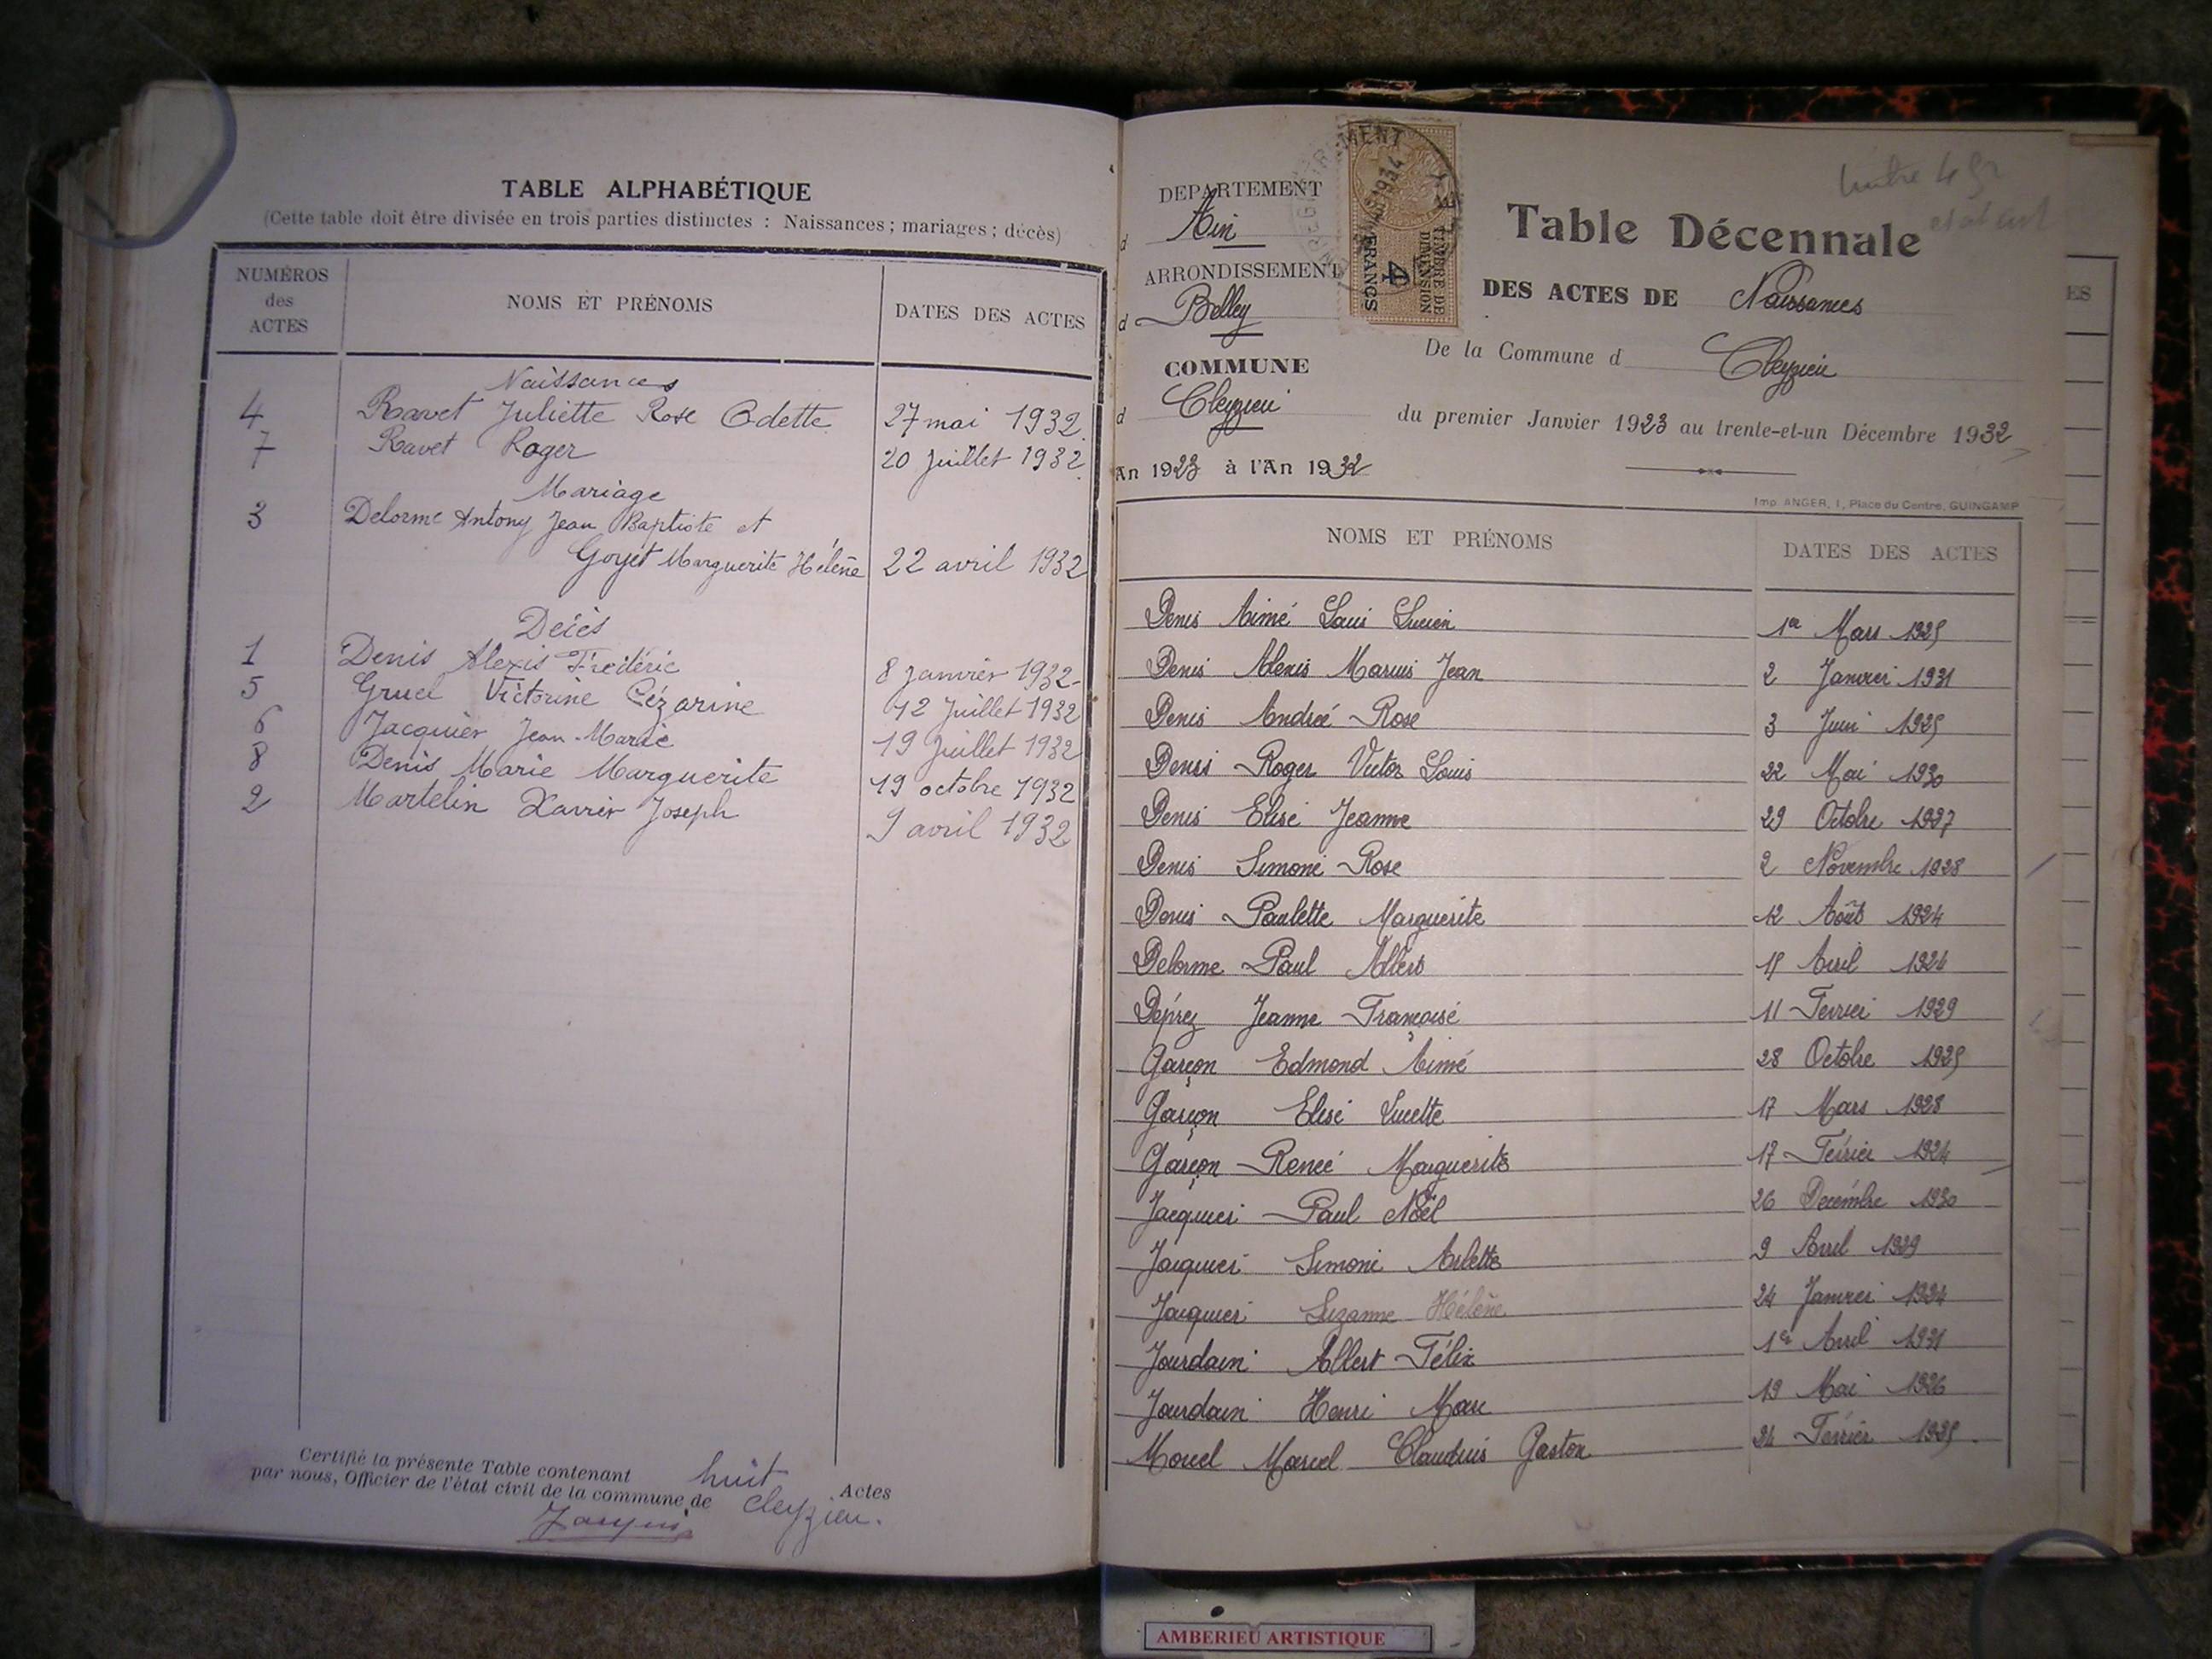 TABLE ALPHABÉTIQUE
(Cette table doit être divisée en trois parties distinctes : Naissances ; mariages ; décès)
NUMÉROS des ACTES NOMS ET PRÉNOMS DATES DES ACTES
Naissances
4 Ravet Juliette Rose Odette 27 mai 1932
7 Ravet Roger 20 Juillet 1932
Mariage
3 Delorme Antony Jean Baptiste et
Goyet Marguerite Hélène 22 avril 1932
Décès
1 Denis Alexis Frédéric 8 Janvier 1932
5 Gruel Victorine Cézarine 12 Juillet 1932
6 Jacquier Jean-Marie 19 Juillet 1932
8 Denis Marie Marguerite 19 octobre 1932
2 Martelin Xavier Joseph 9 avril 1932
Certifié la présente Table contenant huit Actes
par nous, Officier de l'état civil de la commune de Cleyzieu.
DEPARTEMENT
d Ain
ARRONDISSEMENT
d Belley
COMMUNE
d Cleyzieu
An 1923 à l'An 1932
TIMBRE DE DIMENSION
4 FRANCS
Table Décennale
DES ACTES DE Naissances
De la Commune d Cleyzieu
du premier Janvier 1923 au trente-et-un Décembre 1932
Imp. ANGER, 1, Place du Centre, GUINGAMP
NOMS ET PRÉNOMS DATES DES ACTES
Denis Aimé Louis Lucien 1er Mars 1925
Denis Alexis Marius Jean 2 Janvier 1931
Denis Andreé Rose 3 Juin 1925
Denis Roger Victor Louis 22 Mai 1930
Denis Elise Jeanne 29 Octobre 1927
Denis Simone Rose 2 Novembre 1928
Denis Paulette Marguerite 12 Août 1924
Delorme Paul Albert 15 Avril 1924
Déprez Jeanne Françoise 11 Fevrier 1929
Garçon Edmond Aimé 28 Octobre 1925
Garçon Elise Lucette 17 Mars 1928
Garçon Reneé Marguerite 17 Février 1924
Jacquier Paul Noël 26 Decémbre 1930
Jacquier Simone Arlette 9 Avril 1929
Jacquier Suzanne Hélène 24 Janvier 1924
Jourdain Albert Félix 1er Avril 1931
Jourdain Henri Marc 19 Mai 1926
Marcel Claudius Gaston 24 Février 1925
ES
AMBERIEU ARTISTIQUE